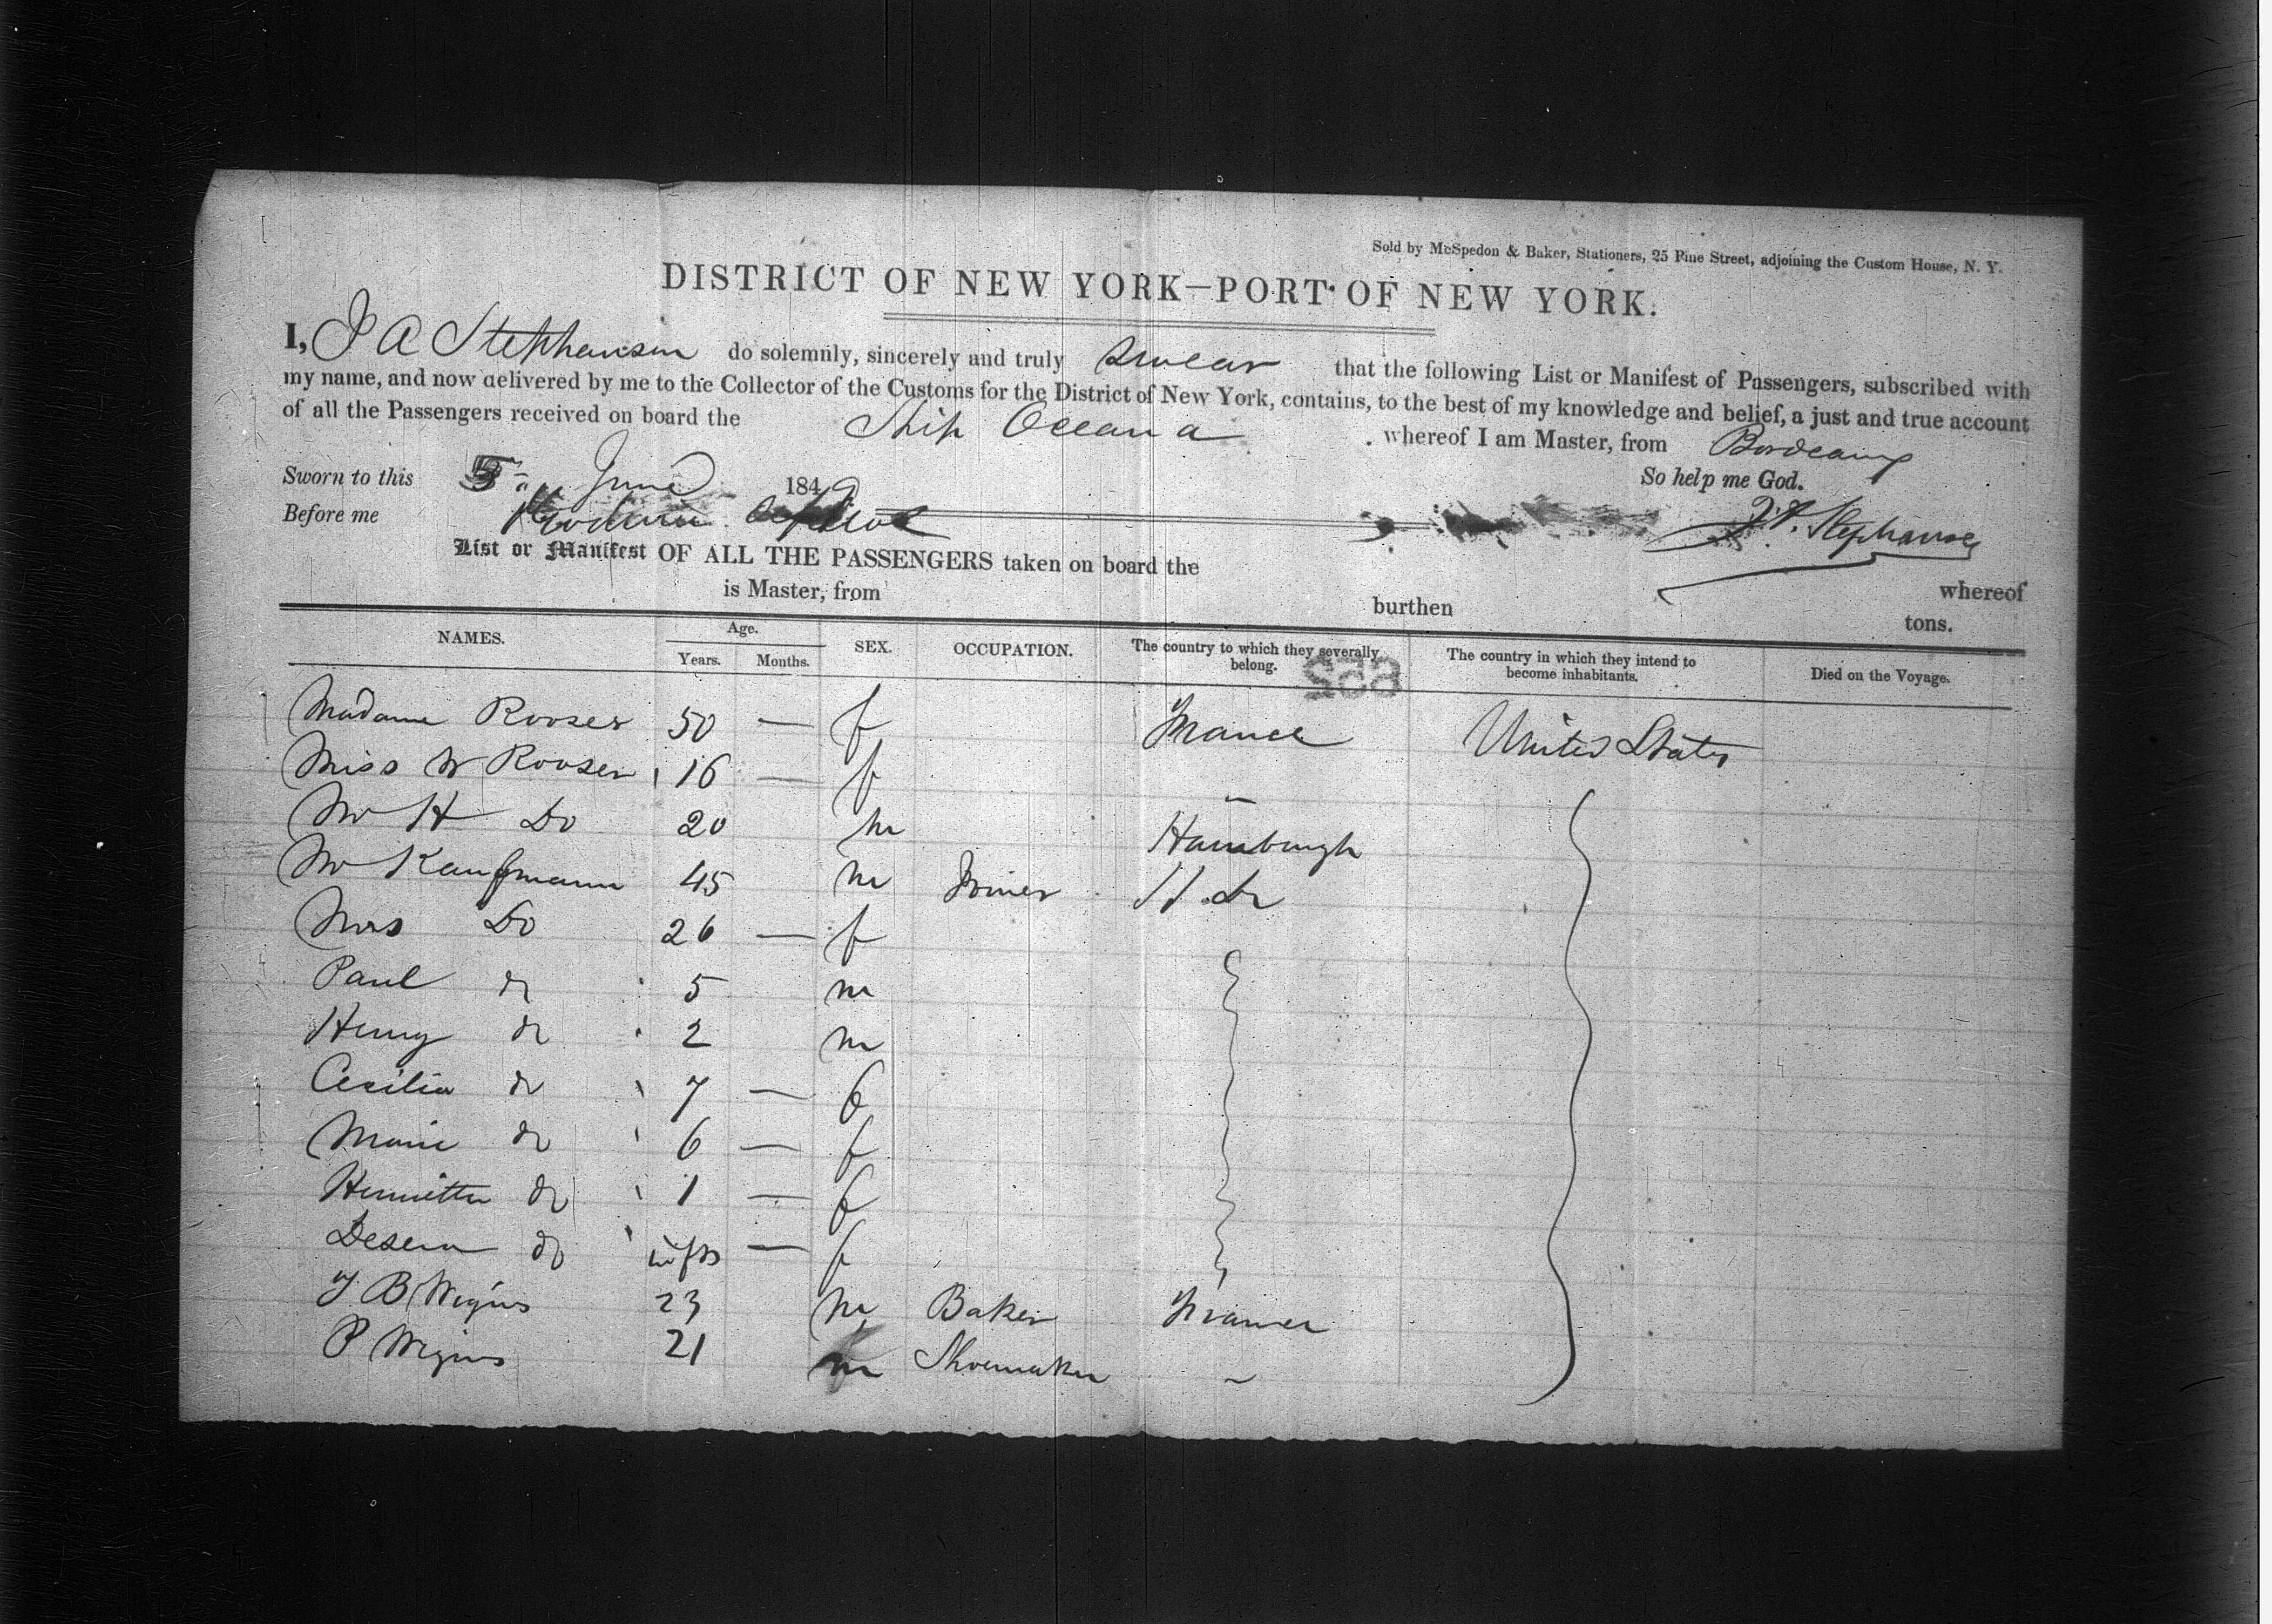 Sold by McSpedon & Baker, Stationers, 25 Pine Street, adjoining the Custom House, N. Y.
DISTRICT OF NEW YORK—PORT OF NEW YORK.
I, J A Stephanson do solemnly, sincerely and truly swear that the following List or Manifest of Passengers, subscribed with
my name, and now delivered by me to the Collector of the Customs for the District of New York, contains, to the best of my knowledge and belief, a just and true account
of all the Passengers received on board the Ship Oceana whereof I am Master, from Bordeaux
Sworn to this 5 June 1849 So help me God.
Before me Stephanson
List or Manifest OF ALL THE PASSENGERS taken on board the whereof
is Master, from burthen tons.
NAMES. Age. Years. Months. SEX. OCCUPATION. The country to which they severally belong. The country in which they intend to become inhabitants. Died on the Voyage.
552
Madame Rooser 50 — f France United States
Miss W Rooser 16 — f
Mr H Do 20 m Hamburgh
Mr Kaufmann 45 m Joiner H. Do
Mrs Do 26 — f
Paul do 5 m
Henry do 2 m
Cecilia do 7 — f
Marie do 6 — f
Henriette do 1 — f
do — f
B Wigins 23 m Baker France
P Wigins 21 m Shoemaker